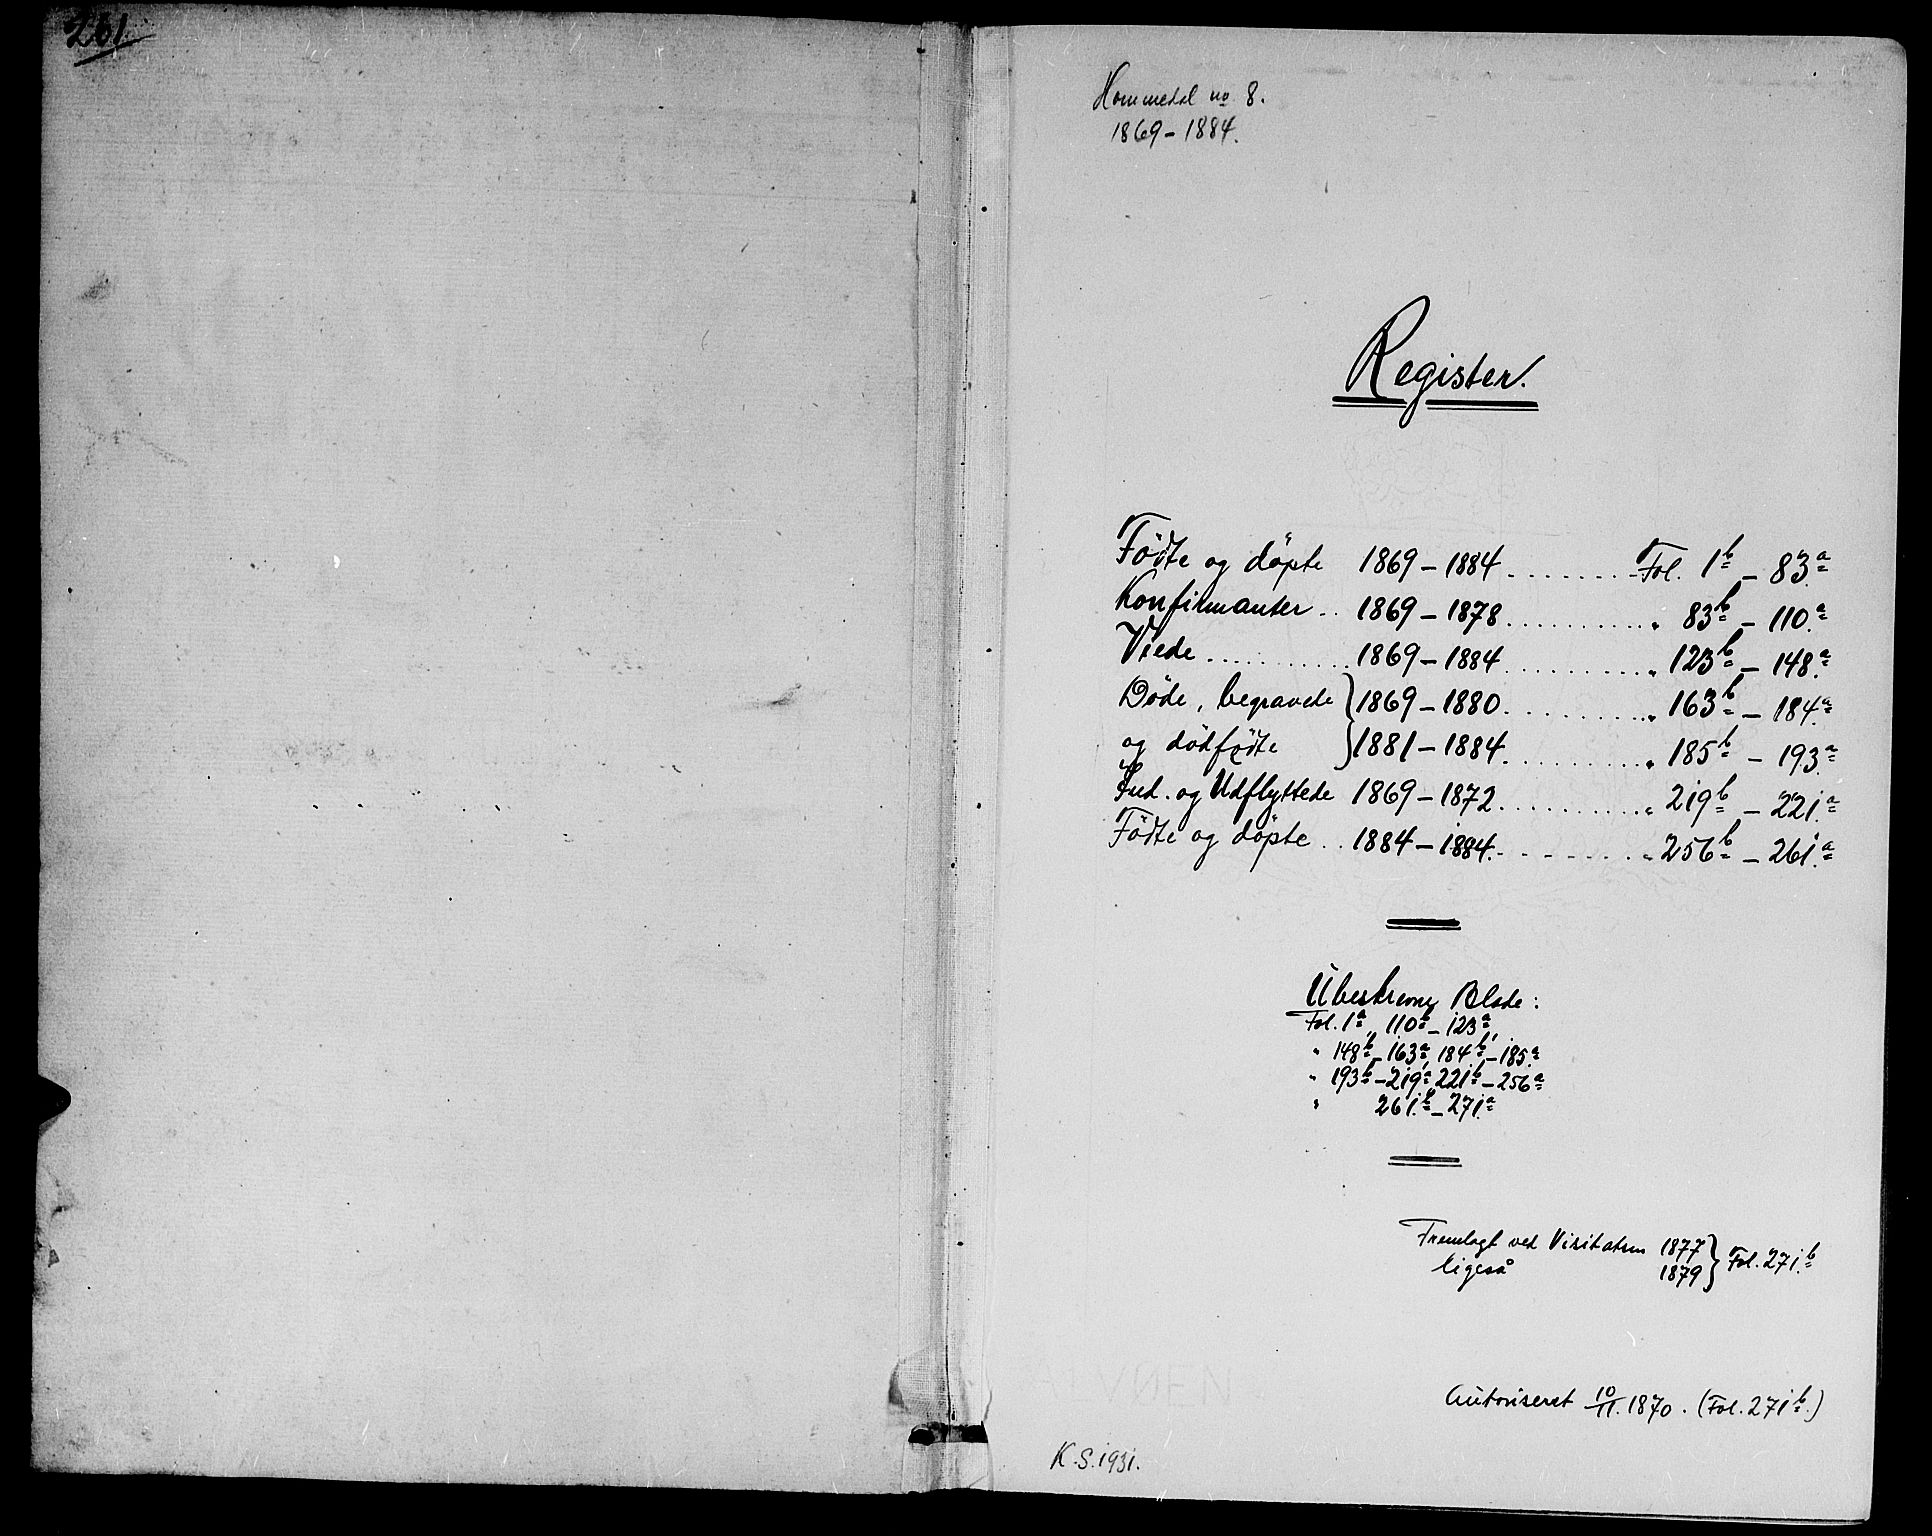 261
Hommedal no 8.
1869-1884.
Register.
Födte og döpte 1869-1884 ........ Fol. 1b - 83a
Konfirmanter .. 1869-1878 ........ " 83b - 110.a
Viede .......... 1869-1884 ........ " 123b - 148.a
Døde, begravede } 1869-1880 ........ " 163b - 184a
og dödfödte } 1881-1884 ........ " 185b - 193.a
Ind. og Udflyttede 1869-1872 ........ " 219b - 221.a
Födte og döpte .. 1884-1884. ........ " 256b - 261.a
Ubeskrevne Blade:
Fol. 1a, 110b-123a,
" 148b-163a, 184b-185a
" 193b-219a, 221b-256a
" 261.b-271.a
Fremlagt ved Visitatsen 1877 } Fol. 271.b
ligeså 1879 }
Autoriseret 10/11. 1870. (Fol. 271b.)
K.S. 1931.